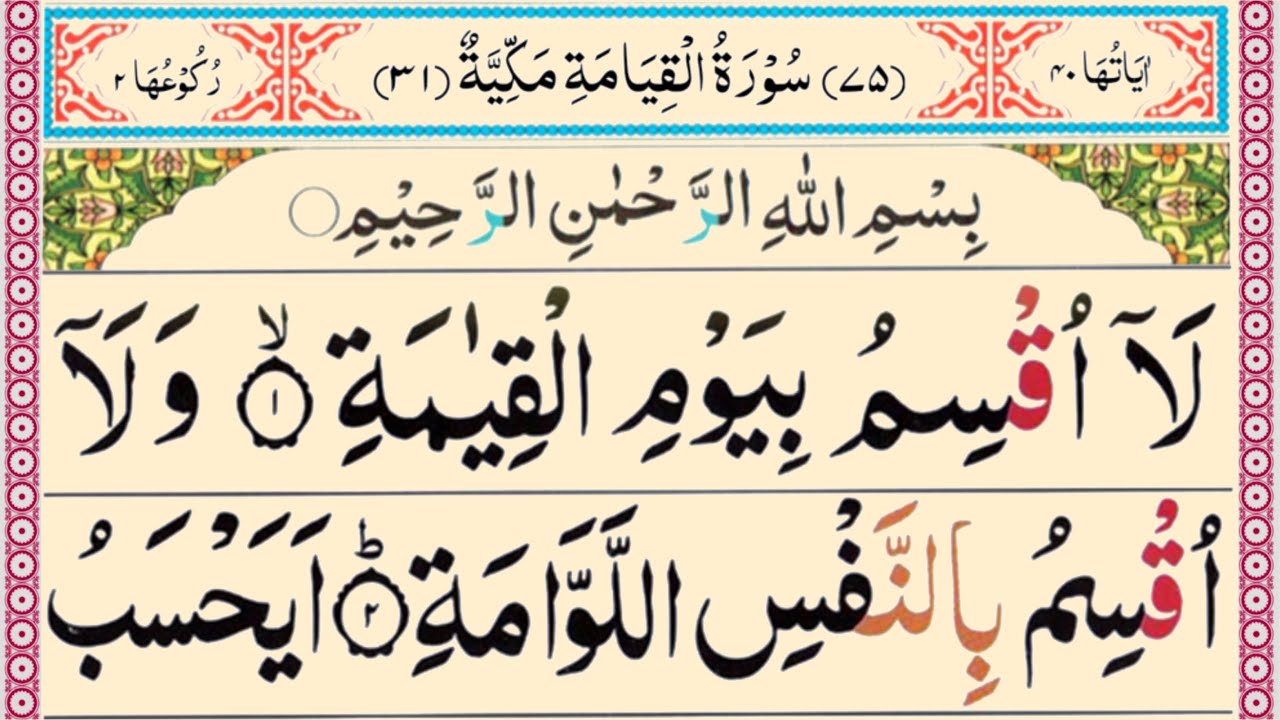 اٰيَاتُهَا ۴۰ (۷۵) سُوْرَةُ الْقِيَامَةِ مَكِّيَّةٌ (۳۱) رُكُوْعُهَا ۲
بِسْمِ اللّٰهِ الرَّحْمٰنِ الرَّحِيْمِ ○
لَآ اُقْسِمُ بِيَوْمِ الْقِيٰمَةِ ۙ﴿۱﴾ وَلَآ
اُقْسِمُ بِالنَّفْسِ اللَّوَّامَةِ ؕ﴿۲﴾ اَيَحْسَبُ